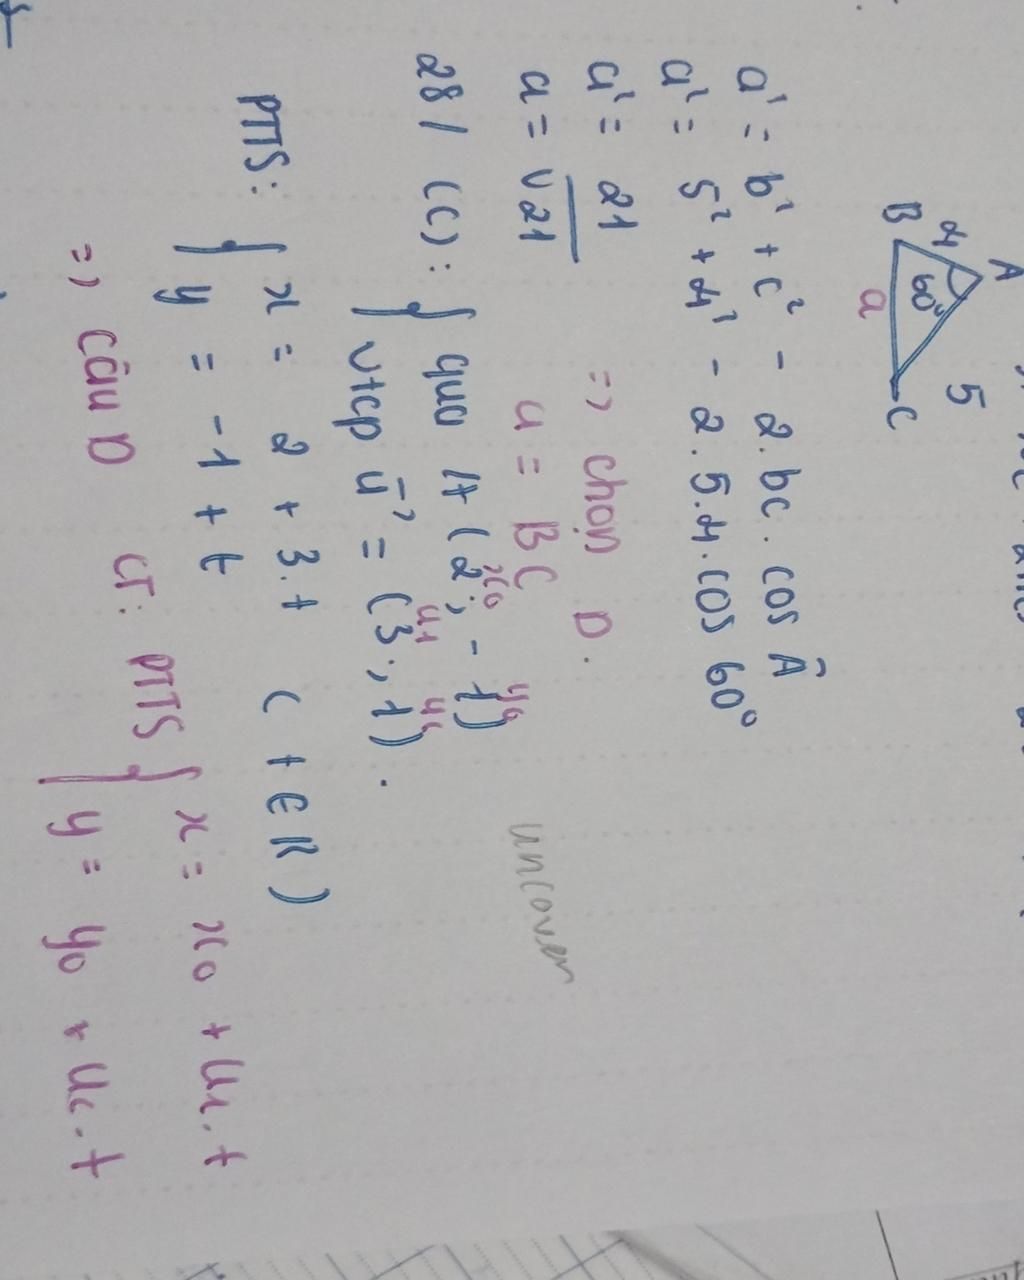 A
4
60°
5
B
a
C
a² = b² + c² - 2.bc. cos Â
a² = 5² + 4² - 2.5.4.cos 60°
a² = 21 => chọn D.
a = √21 a = BC
uncover
28/ (C): { qua A (2 ; -1)
x₀ y₀
vtcp u⃗ = (3 ; 1).
u₁ u₂
PTTS: { x = 2 + 3.t (t ∈ R)
y = -1 + t
=> câu D CT: PTTS { x = x₀ + u₁.t
y = y₀ + u₂.t